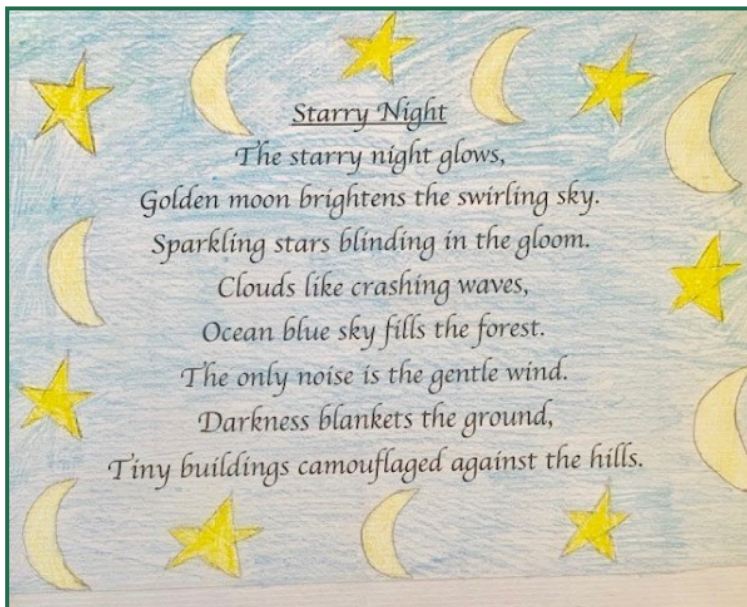 Starry Night
The starry night glows,
Golden moon brightens the swirling sky.
Sparkling stars blinding in the gloom.
Clouds like crashing waves,
Ocean blue sky fills the forest.
The only noise is the gentle wind.
Darkness blankets the ground,
Tiny buildings camouflaged against the hills.